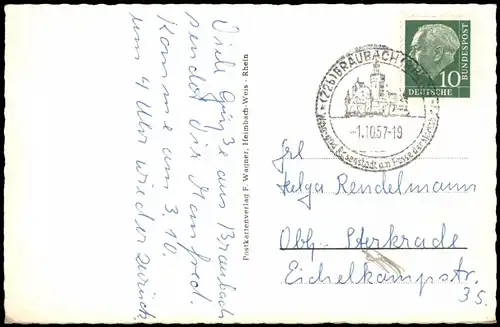 Viele Grüße aus Braubach
sendet Dir Manfred.
Komme am 3.10.
um 4 Uhr wieder zurück
Postkartenverlag F. Wagner, Heimbach-Weis - Rhein
(22b) BRAUBACH
-1.10.57-19
10
DEUTSCHE
BUNDESPOST
Frl
Helga Rendelmann
Obh.- Sterkrade
Eichelkampstr.
35.